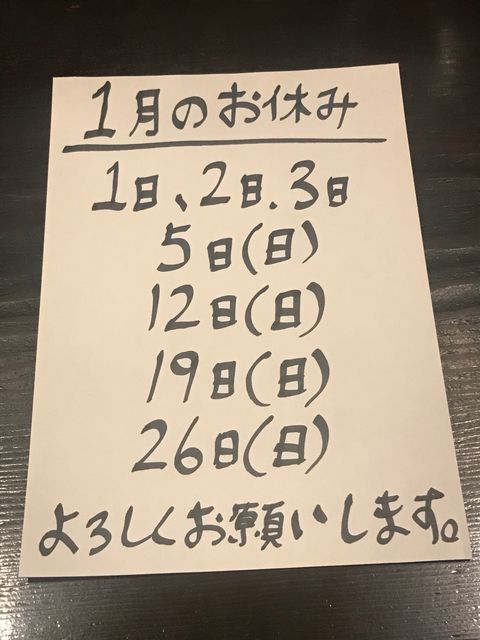 1月のお休み
1日、2日.3日
5日(日)
12日(日)
19日(日)
26日(日)
よろしくお願いします。